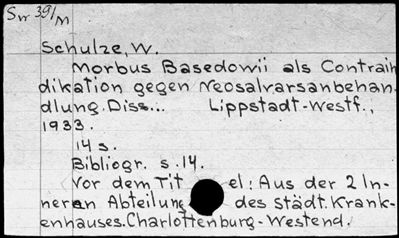 Sw 39/m
Schulze, W.
Morbus Basedowii als Contrain
dikation gegen Neosalvarsanbehan.
dlung. Diss... Lippstadt-Westf.,
1933.
14 s.
Bibliogr. s. 14.
Vor dem Titel: Aus der 2 In-
neren Abteilung des städt. Krank-
enhauses. Charlottenburg-Westend.